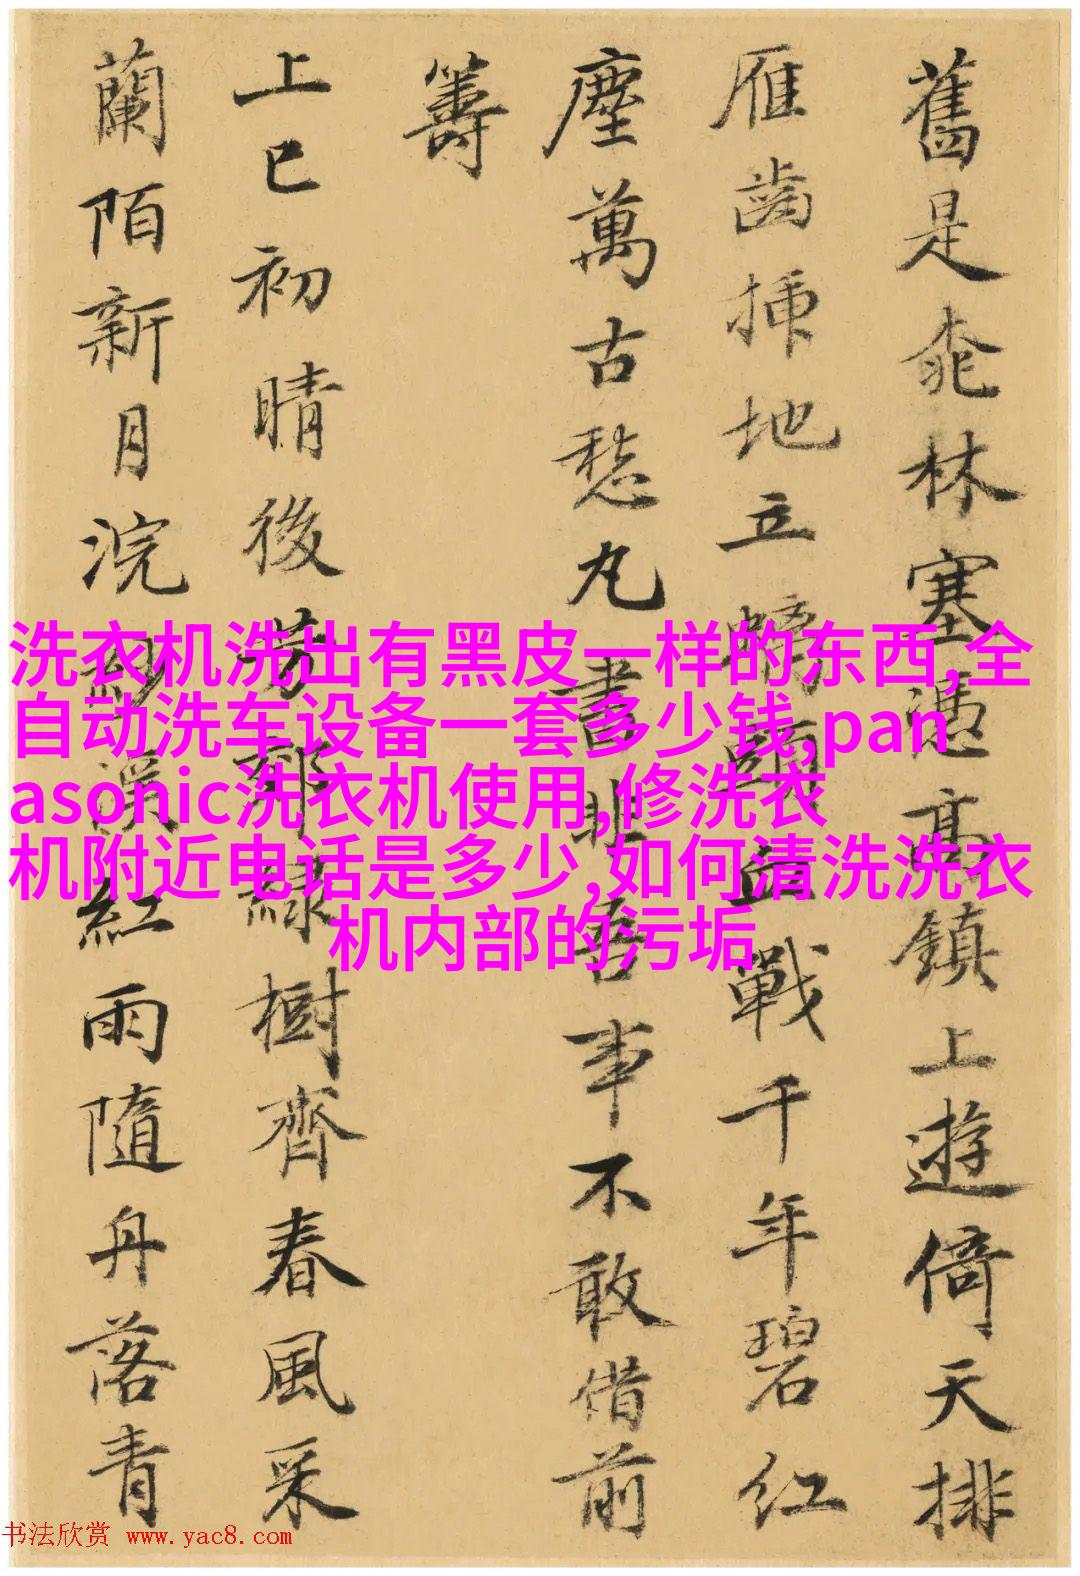 舊是桃林塞憑高鎮上遊倚天排
雁齒揷地立螭頭血戰千年碧紅
塵萬古愁丸書非吾事不敢借前
籌
上巳初晴後芳郊綠樹齊春風采
蘭陌新月浣紗溪紅雨隨舟落青
洗衣机洗出有黑皮一样的东西,全
自动洗车设备一套多少钱,pan
asonic洗衣机使用,修洗衣
机附近电话是多少,如何清洗洗衣
机内部的污垢
书法欣赏 www.yac8.com